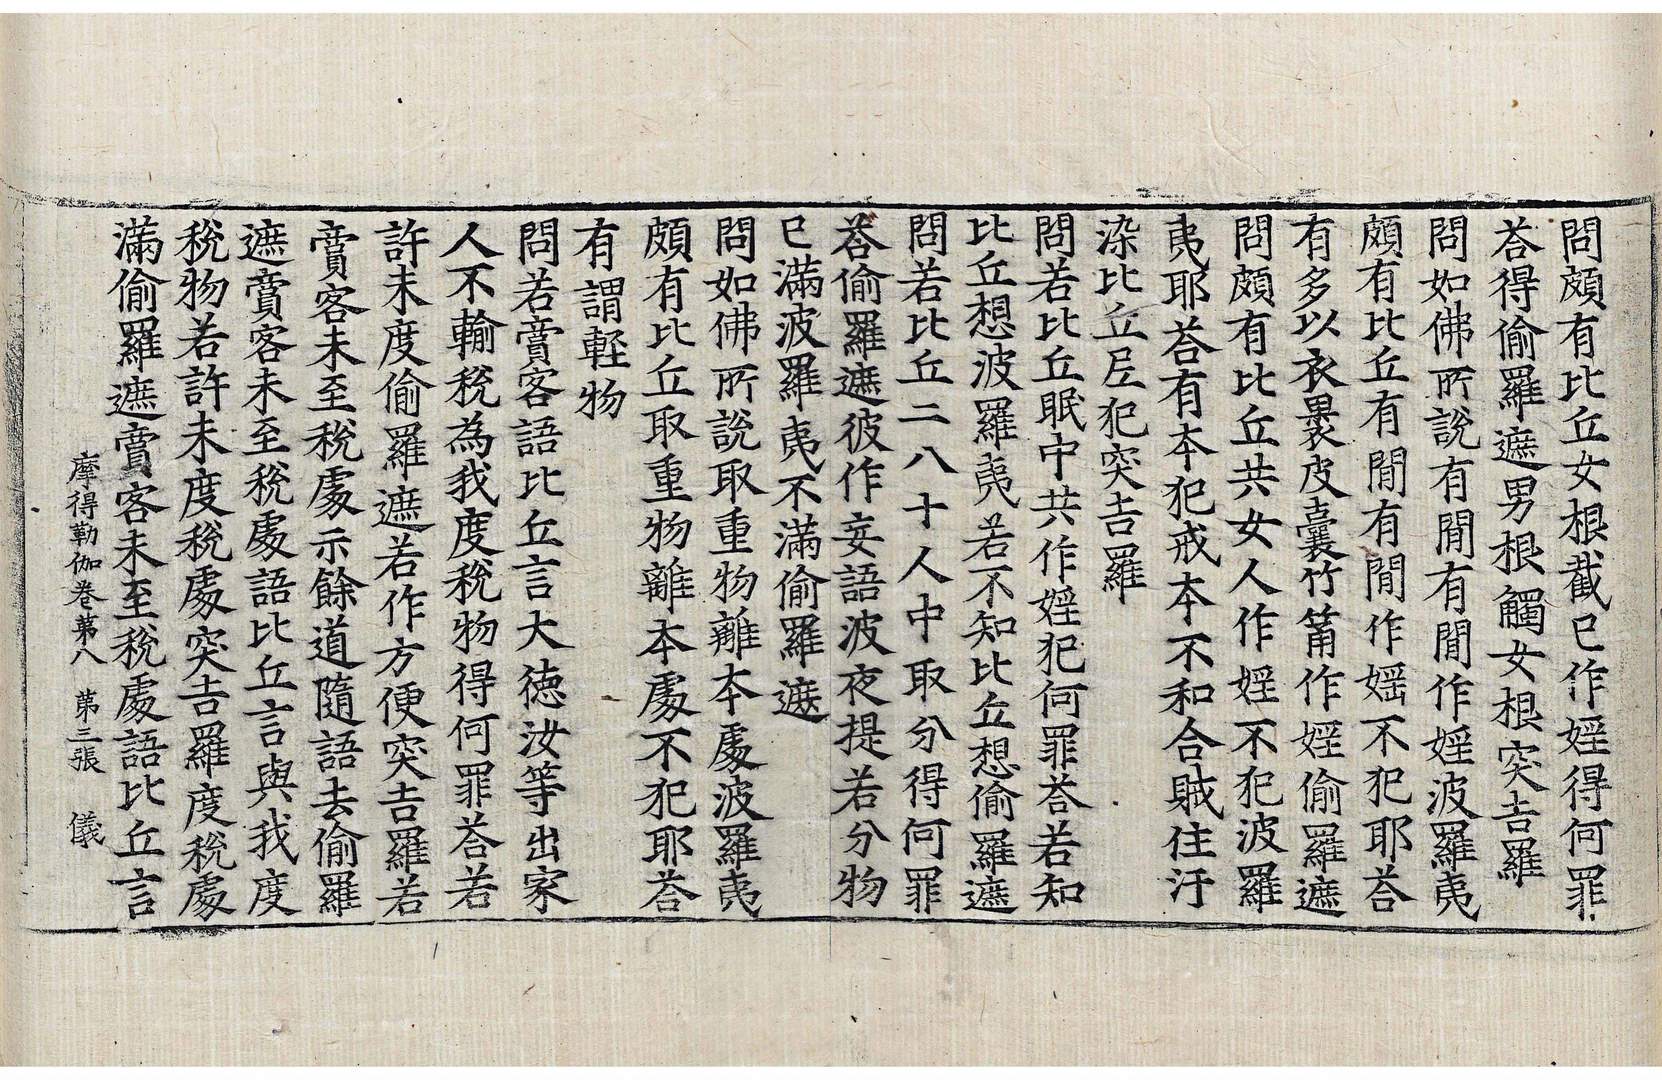 問頗有比丘女根截已作婬得何罪
荅得偷羅遮男根觸女根突吉羅
問如佛所說有閒有閒作婬波羅夷
頗有比丘有閒有閒作婬不犯耶荅
有多以衣裹皮囊竹筩作婬偷羅遮
問頗有比丘共女人作婬不犯波羅
夷耶荅有本犯戒本不和合賊住汙
染比丘尼犯突吉羅
問若比丘眠中共作婬犯何罪荅若知
比丘想波羅夷若不知比丘想偷羅遮
問若比丘二八十人中取分得何罪
荅偷羅遮彼作妄語波夜提若分物
已滿波羅夷不滿偷羅遮
問如佛所說取重物離本處波羅夷
頗有比丘取重物離本處不犯耶荅
有謂輕物
問若賣客語比丘言大德汝等出家
人不輸稅為我度稅物得何罪荅若
許未度偷羅遮若作方便突吉羅若
賣客未至稅處示餘道隨語去偷羅
遮賣客未至稅處語比丘言與我度
稅物若許未度稅處突吉羅度稅處
滿偷羅遮賣客未至稅處語比丘言
摩得勒伽卷第八 第三張 儀